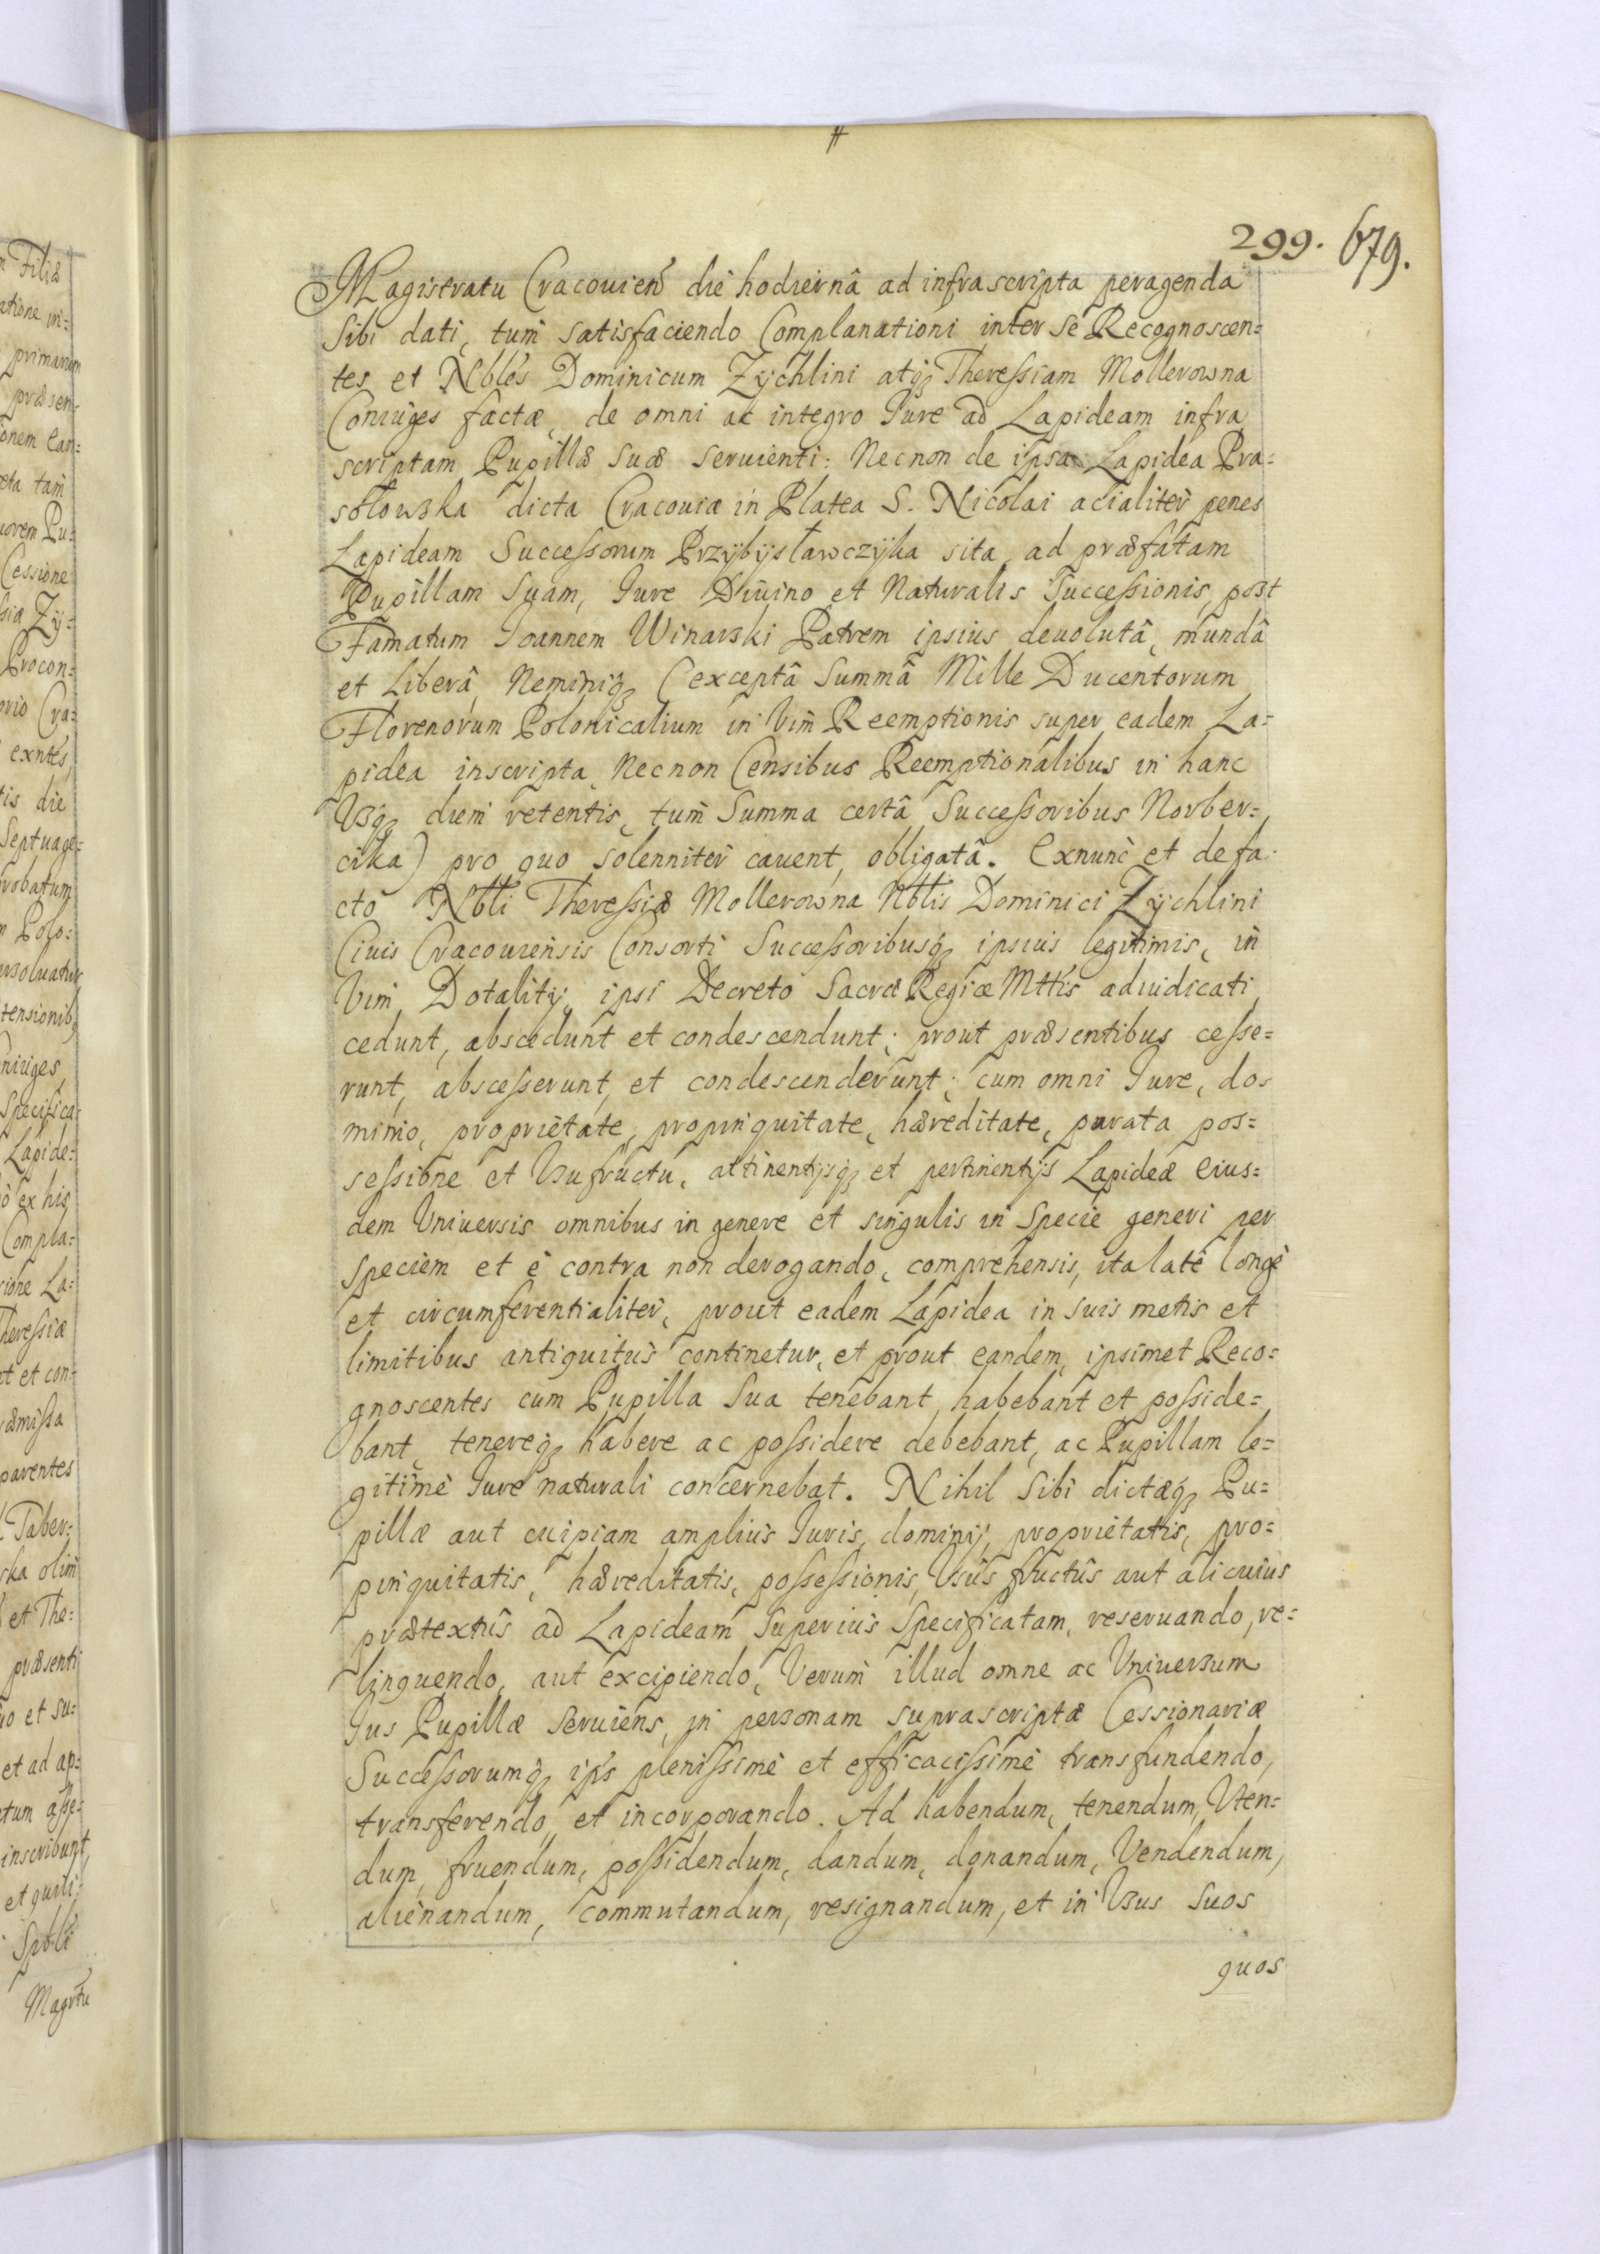 299. 679.
Magistratu Cracovien̄ die hodiernâ ad infrascripta peragenda
Sibi dati, tum̄ satisfaciendo Complanationi inter se Recognoscen=
tes et Nbles Dominicum Zychlini atq₃ Theressiam Mollerowna
Coniuges factæ, de omni ac integro Iure ad Lapideam infra
scriptam Pupillæ suæ seruienti: Necnon de ipsa Lapidea Pra=
sołowska dicta Cracouiæ in Platea S. Nicolai acialiter penes
Lapideam Successorum Przybysławczyka sita, ad præfatam
Pupillam Suam, Iure Diuino et Naturalis Successionis, post
Famatum Ioannem Winarski Patrem ipsius deuolutâ, mundâ
et Liberâ, Neminiq₃ (exceptâ Summâ Mille Ducentorum
Florenorum Polonicalium in Vim Reemptionis super eadem La=
pidea inscripta, Necnon Censibus Reemptionalibus in hanc
Vsq₃ diem retentis, tum̄ Summa certâ Successoribus Norber=
cika) pro quo solenniter cauent, obligatâ. Exnunc et defa=
cto Nbli Theressiæ Mollerowna Nblis Dominici Zychlini
Ciuis Cracouiensis Consorti Successoribusq₃ ipsius legitimis, in
Vim Dotalitij ipsi Decreto Sacræ Regiæ Mttis adiudicati
cedunt, abscedunt et condescendunt; prout præsentibus cesse=
runt, abscesserunt, et condescenderunt; cum omni Iure, do=
minio, proprietate, propinquitate, hæreditate, parata pos=
sessione et Vsufructu, attinentijsq₃ et pertinentijs Lapideæ Eius=
dem Vniuersis omnibus in genere et singulis in Specie generi per
Speciem et è contra non derogando, comprehensis, ita latè longè
et circumferentialiter, prout eadem Lapidea in suis metis et
limitibus antiquitus continetur, et prout eandem, ipsimet Reco=
gnoscentes cum Pupilla Sua tenebant, habebant et posside=
bant, tenereq₃ habere ac possidere debebant, ac Pupillam le=
gitimè Iure naturali concernebat. Nihil Sibi dictæq₃ Pu=
pillæ aut cuipiam amplius Iuris, dominij, proprietatis, pro=
pinquitatis, hæreditatis, possessionis, Vsûs fructûs aut alicuius
prætextûs ad Lapideam Superius Specificatam, reseruando, re=
linquendo, aut excipiendo, Verum illud omne ac Vniuersum
Ius Pupillæ Seruiens, in personam suprascriptæ Cessionariæ
Successorumq₃ ip̄s plenissimè et efficacissimè transfundendo,
transferendo, et incorporando. Ad habendum, tenendum, Vten=
dum, fruendum, possidendum, dandum, donandum, Vendendum,
alienandum, commutandum, resignandum, et in Vsus Suos
quos